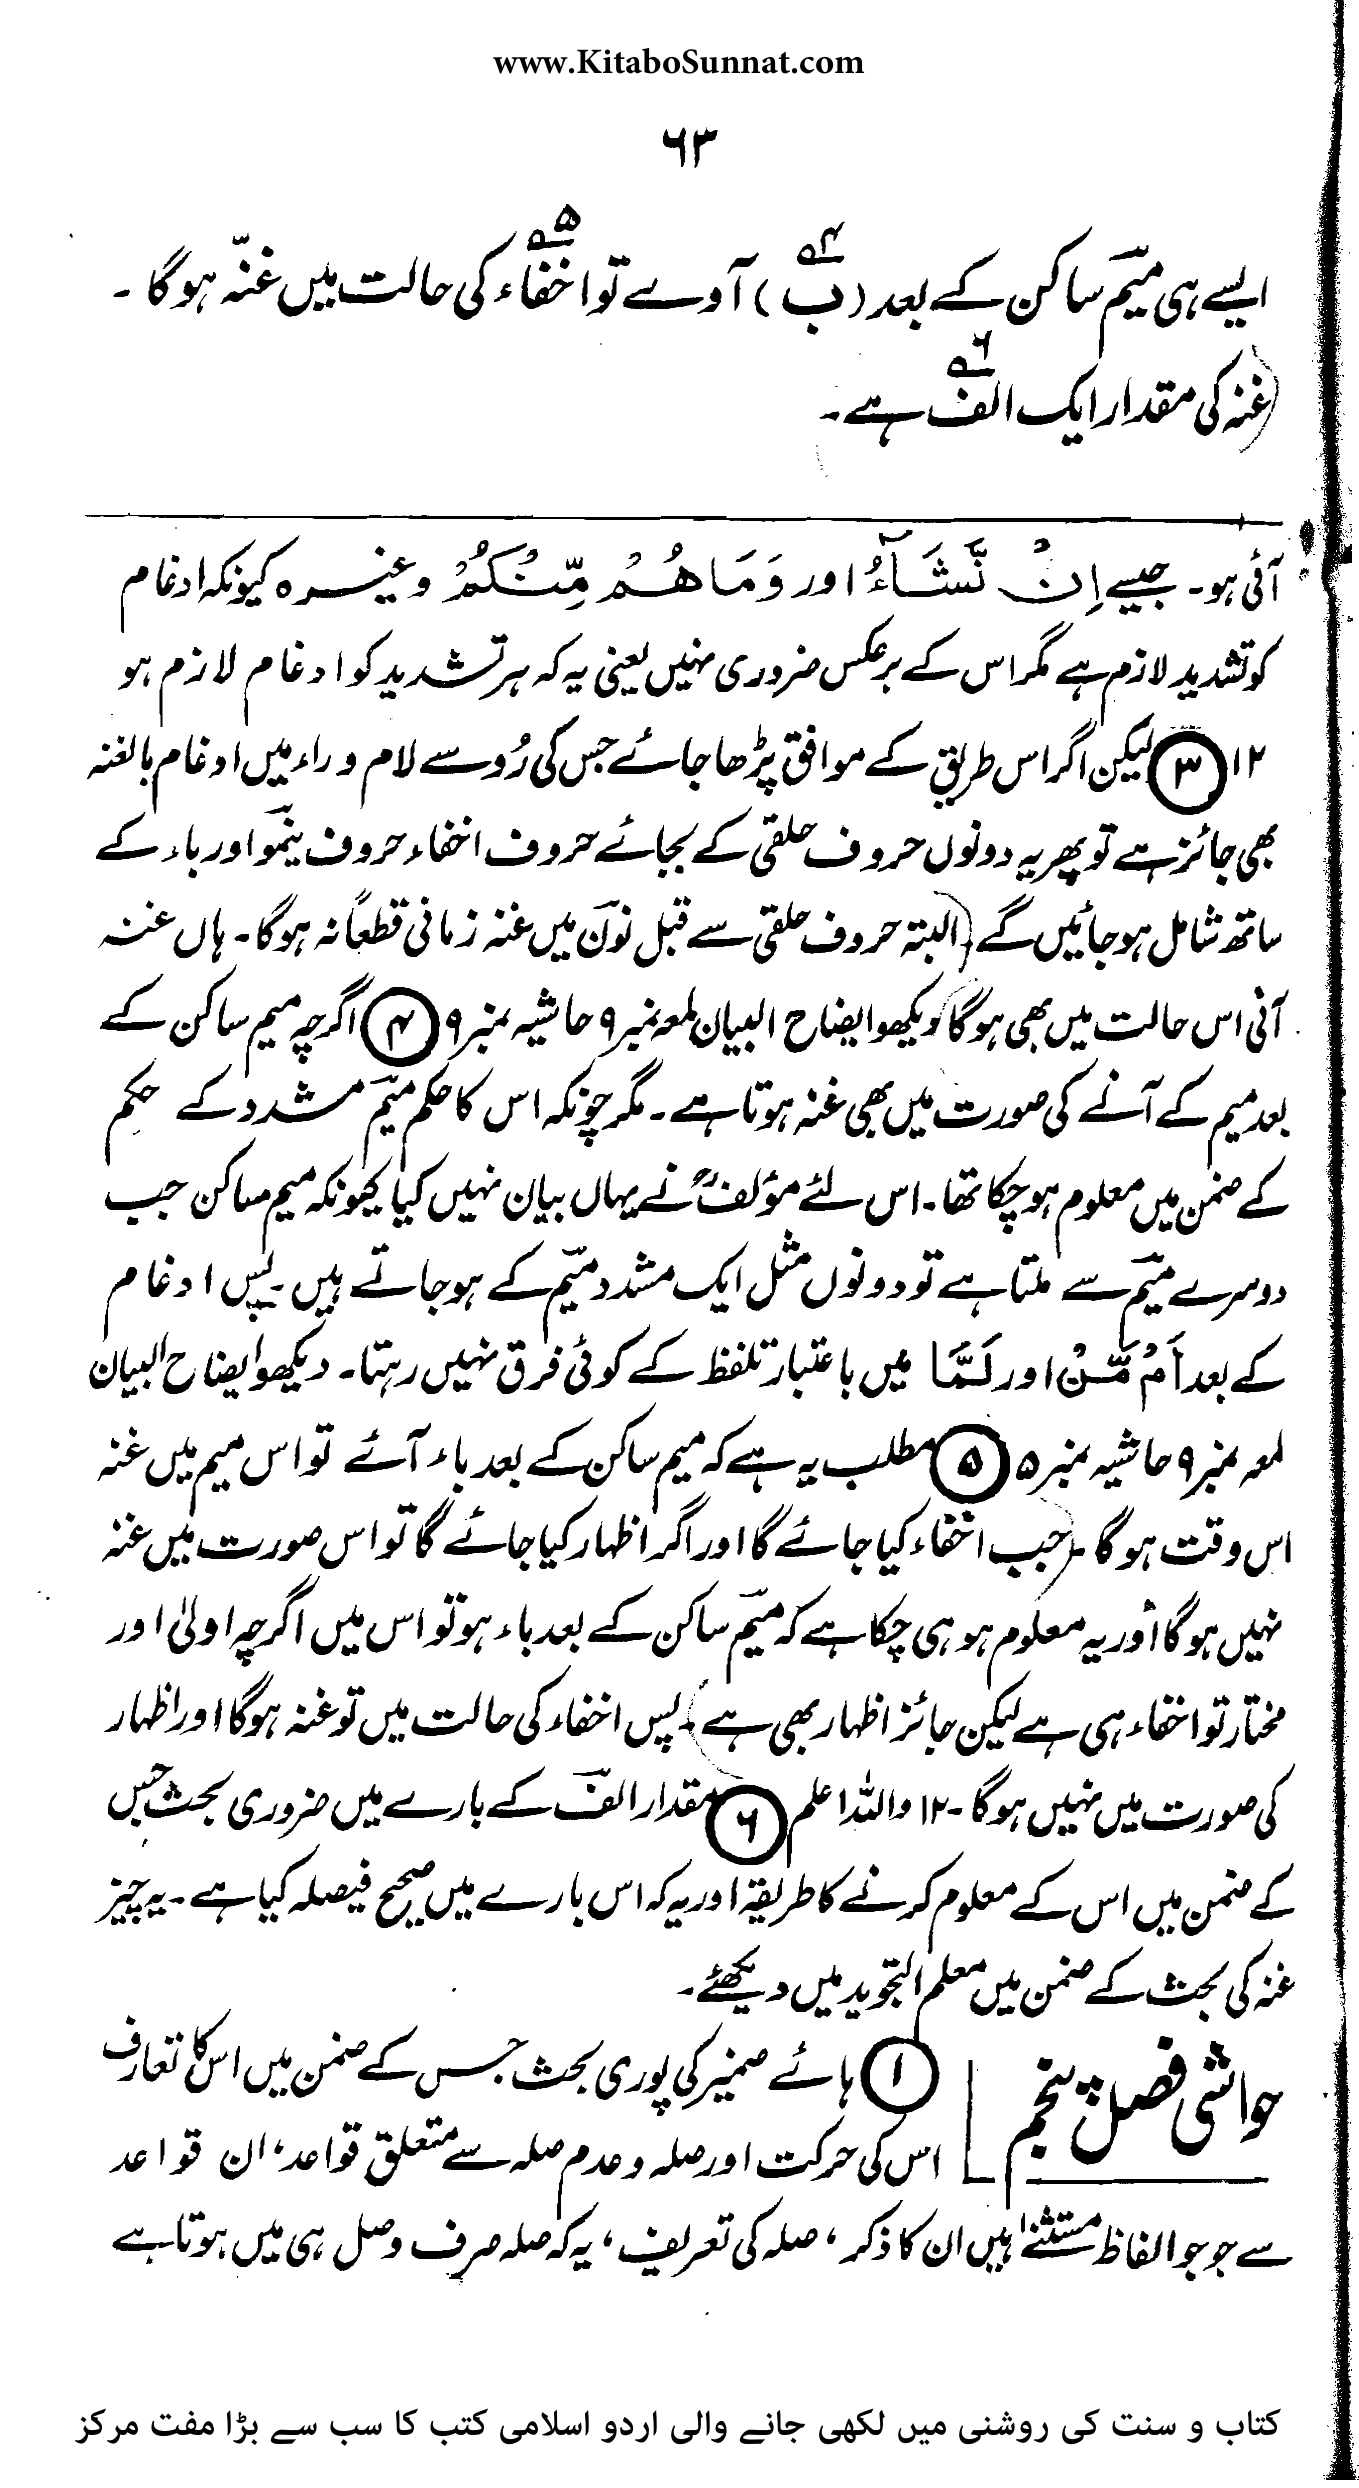 www.KitaboSunnat.com
۶۳
ایسے ہی میم ساکن کے بعد (ب)۴ آوے تو اخفاء۵ کی حالت میں غنّہ ہوگا ۔
(غنہ کی مقدار ایک الف۶ ہے۔
آئی ہو۔ جیسے اِنْ نَّشَآءُ اور وَمَا هُمْ مِّنْكُمْ وغیرہ کیونکہ ادغام
کو تشدید لازم ہے مگر اس کے برعکس ضروری نہیں یعنی یہ کہ ہر تشدید کو ادغام لازم ہو
۱۲ (۳) لیکن اگر اس طریق کے موافق پڑھا جائے جس کی رُو سے لام و راء میں ادغام بالغنہ
بھی جائز ہے تو پھر یہ دونوں حروف حلقی کے بجائے حروف اخفاء حروف ینمو اور باء کے
ساتھ شامل ہو جائیں گے۔ (البتہ حروف حلقی سے قبل نون میں غنہ زمانی قطعاً نہ ہوگا۔ ہاں غنہ
آنی اس حالت میں بھی ہوگا) دیکھو ایضاح البیان لمعہ نمبر ۹ حاشیہ نمبر ۹ (۴) اگرچہ میم ساکن کے
بعد میم کے آنے کی صورت میں بھی غنہ ہوتا ہے۔ مگر چونکہ اس کا حکم میم مشدد کے حکم
کے ضمن میں معلوم ہو چکا تھا۔ اس لئے مؤلفؒ نے یہاں بیان نہیں کیا کیونکہ میم ساکن جب
دوسرے میم سے ملتا ہے تو دونوں مثل ایک مشدد میم کے ہو جاتے ہیں۔ پس ادغام
کے بعد اَمْ مَّنْ اور لَمَّا میں باعتبار تلفظ کے کوئی فرق نہیں رہتا۔ دیکھو ایضاح البیان
لمعہ نمبر ۹ حاشیہ نمبر ۵ (۵) مطلب یہ ہے کہ میم ساکن کے بعد باء آئے تو اس میم میں غنہ
اس وقت ہوگا ۔ (جب اخفاء کیا جائے گا اور اگر اظہار کیا جائے گا تو اس صورت میں غنہ
نہیں ہوگا اور یہ معلوم ہو ہی چکا ہے کہ میم ساکن کے بعد باء ہو تو اس میں اگرچہ اولیٰ اور
مختار تو اخفاء ہی ہے لیکن جائز اظہار بھی ہے)۔ پس اخفاء کی حالت میں تو غنہ ہوگا اور اظہار
کی صورت میں نہیں ہوگا ۔۱۲ واللہ اعلم (۶) مقدار الف کے بارے میں ضروری بحث جس
کے ضمن میں اس کے معلوم کرنے کا طریقہ اور یہ کہ اس بارے میں صحیح فیصلہ کیا ہے۔ یہ چیز
غنہ کی بحث کے ضمن میں معلم التجوید میں دیکھئے۔
حواشی فصل پنجم
(۱) ہائے ضمیر کی پوری بحث جس کے ضمن میں اس کا تعارف
اس کی حرکت اور صلہ و عدم صلہ سے متعلق قواعد، ان قواعد
سے جو جو الفاظ مستثنےٰ ہیں ان کا ذکر، صلہ کی تعریف، یہ کہ صلہ صرف وصل ہی میں ہوتا ہے
کتاب و سنت کی روشنی میں لکھی جانے والی اردو اسلامی کتب کا سب سے بڑا مفت مرکز